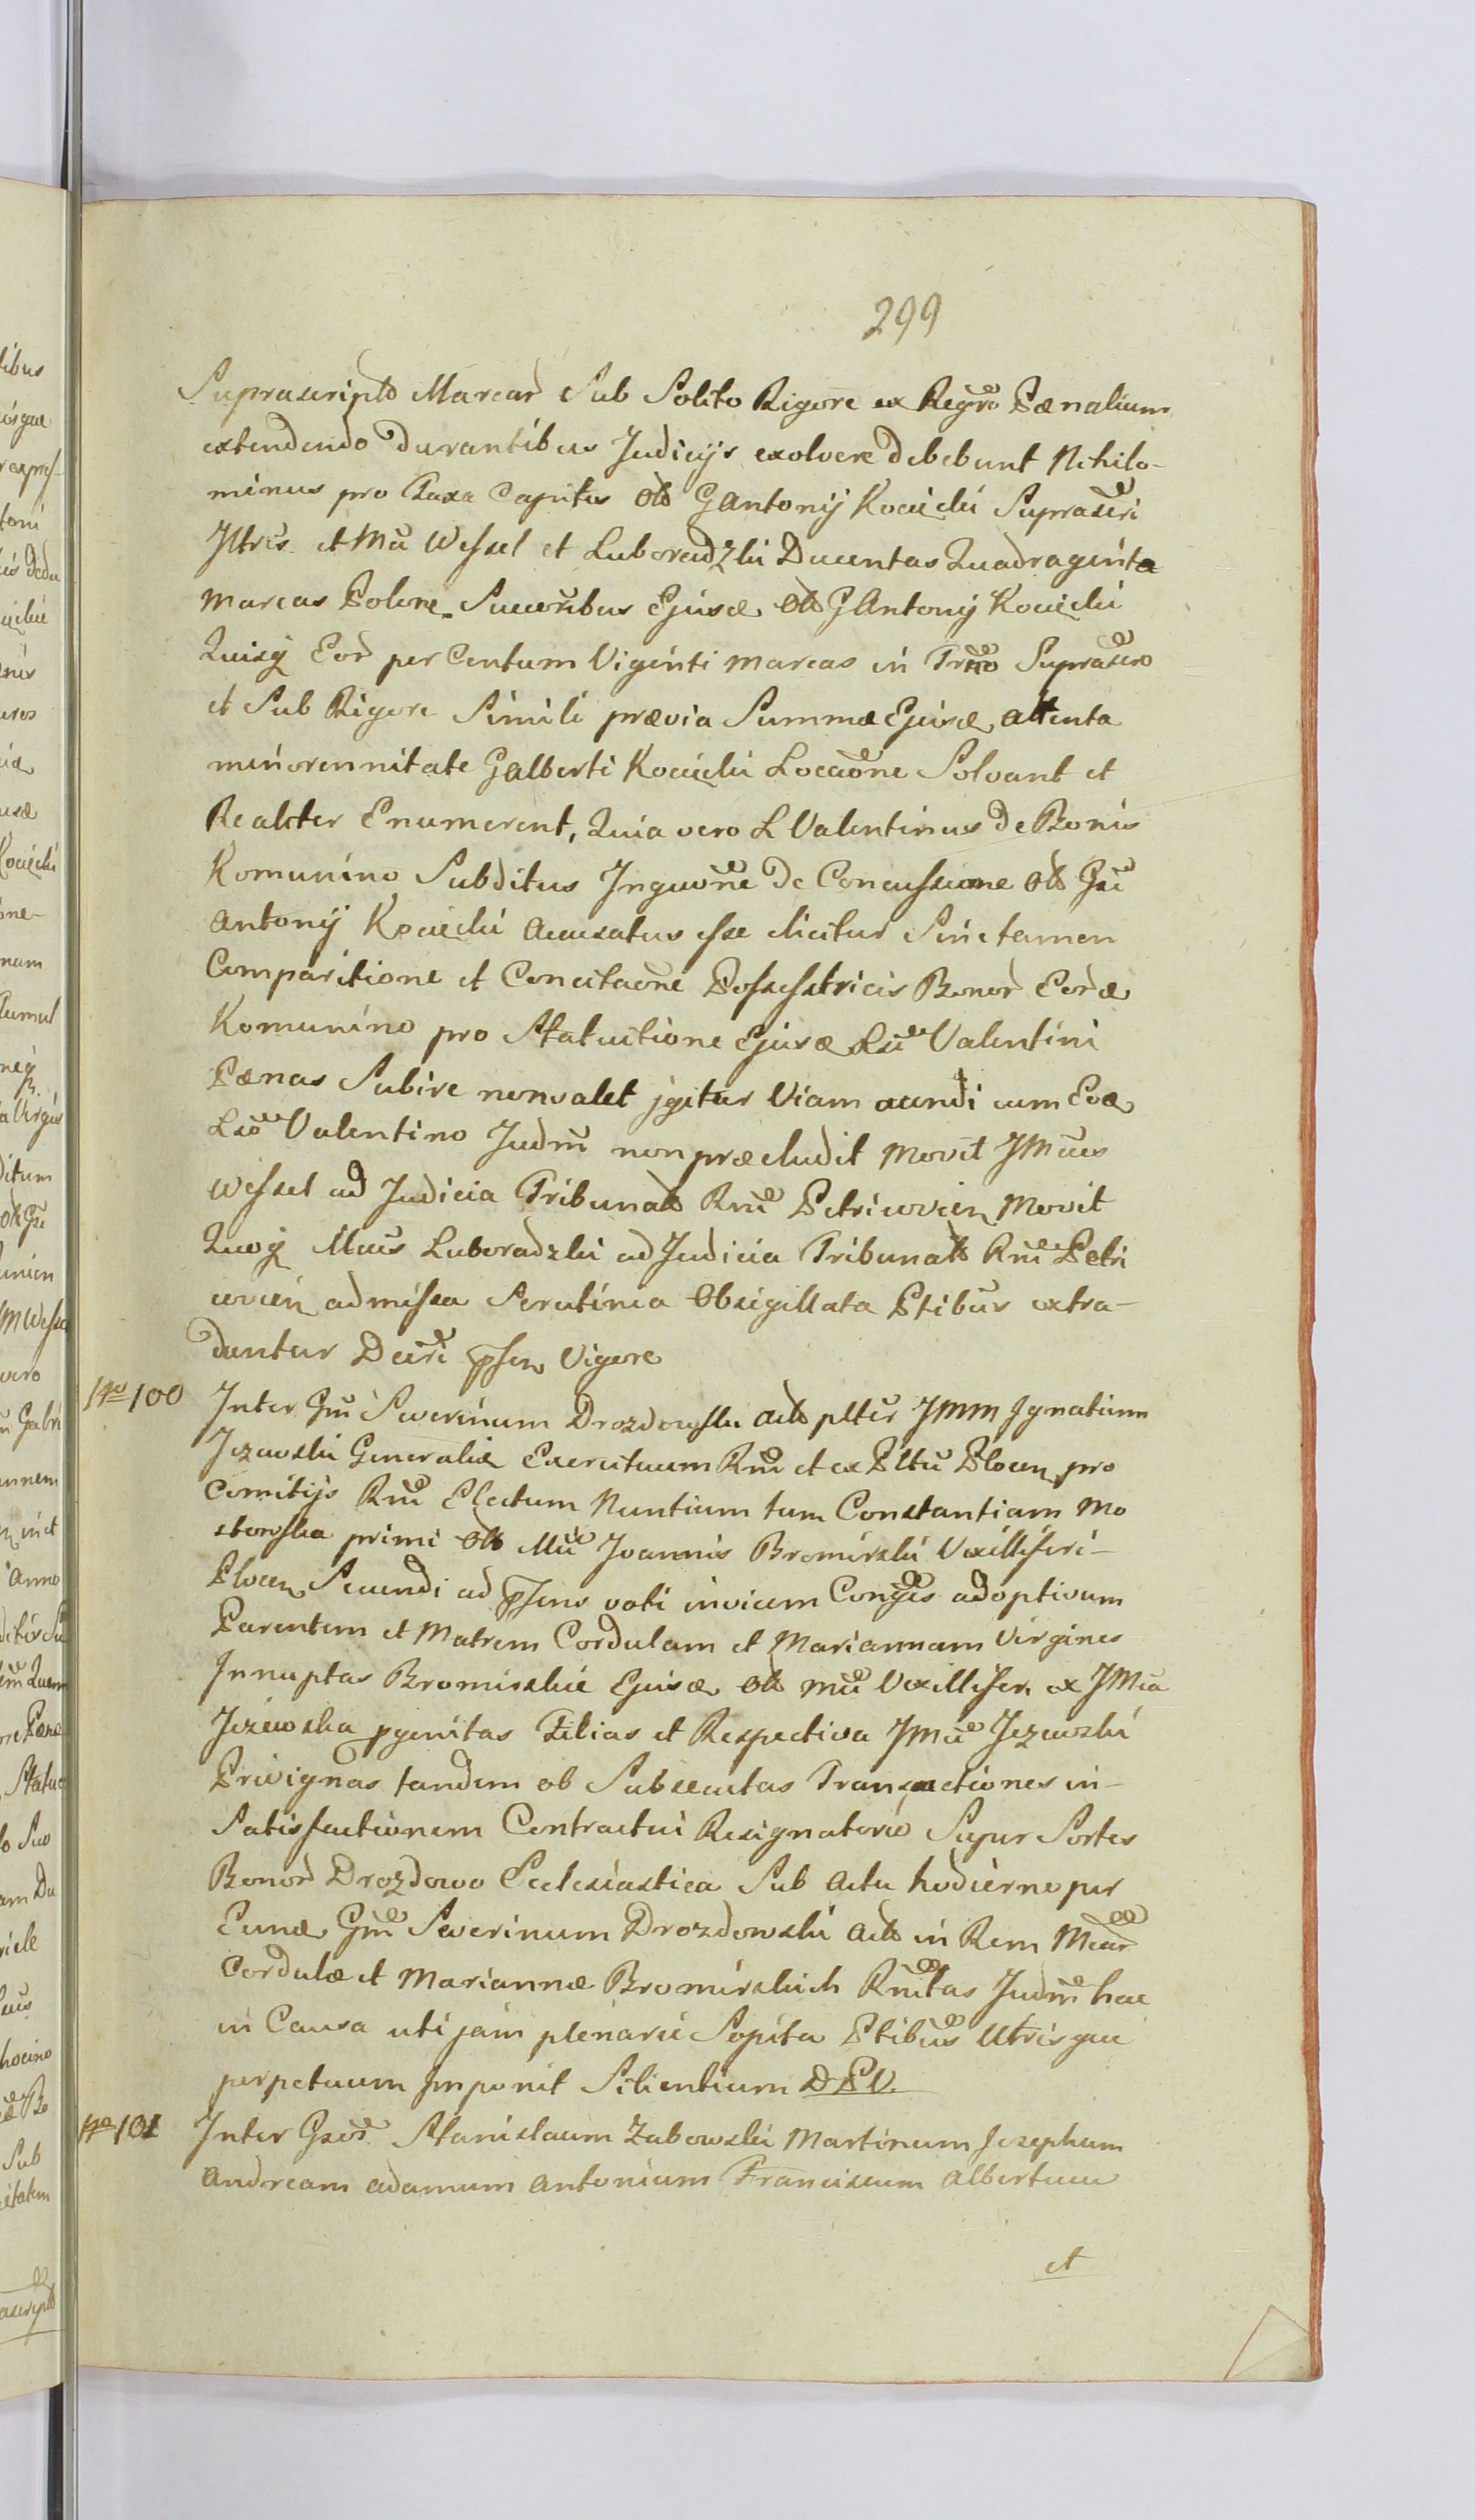 299
Suprascripto Marcar Sub Solito Rigore ex Regro Pænalium
extendendo durantibus Judicijs exolvere debebunt Nihilo-
minus pro Taxa Capitis Olo G Antonij Kocięcki Suprascri
Jltris et Mci Wessel et Luboradzki Ducentas Quadraginta
Marcas Polon. Successoribus Ejusd Olo G Antonij Kocięcki
Quisq Eor per Centum Viginti marcas in Trmo Suprascro
et Sub Rigore Simili prævia Summæ Ejusd attenta
minorennitate G Alberti Kocięcki Locaone Solvant et
Realiter Enumerent, Quia vero L Valentinus de Bonis
Komunino Subditus de Concussione Olo Gsi
Antonij Kocięcki Accusatus esse dicitur Sine tamen
Comparitione et Concitaone Possessatricis Bonor Eord
Komunino pro Statuitione Ejusd Lsi Valentini
Pænas Subire nonvalet jgitur Viam agendi cum Eod
Lso Valentino Judm non præcludit Movit JMcus
Wessel ad Judicia Tribunalo Rni Petricovien Movit
Quoq Mcus Luboradzki ad Judicia Tribunalo Rni Petri
covien admissa Scrutinia Obsigillata Ptibus extra-
duntur Decri pnsen Vigore
Nro 100 Inter Gm Severinum Drozdowski Acto JMM Ignatium
Jezewski Generalie Exercituum Rni et ex Pltu Plocen pro
Comitijs Rni Electum Nuntium tum Constantiam Mo
stowska primi Olo Mci Joannis Bromirski Vexilliferi-
Plocen Secundi ad pnsens voti invicem Conges adoptivum
Parentem et Matrem Cordulam et Mariannam Virgines
Innuptas Bromirskie Ejusd Olo Mci Vexillifer. ex JMca
Jezewska pgenitas Filias et Respectiva JMci Jezewski
Privignas tandem ob Subsecutas Transactiones in-
Satisfactionem Contractui Resignatorio Super Sortes
Bonor Drozdowo Ecclesiastica Sub Actu hodierno per
Eund Gm Severinum Drozdowski Acto in Rem Mcar
Cordulæ et Mariannæ Bromirskich Judm hac
in Causa uti jam plenarie Sopita Ptibus Utrisque
perpetuum Imponit Silentium D P V.
Nro 101 Inter Gsos Stanislaum Zabowski Martinum Josephum
Andream Adamum Antonium Franciscum Albertum
et